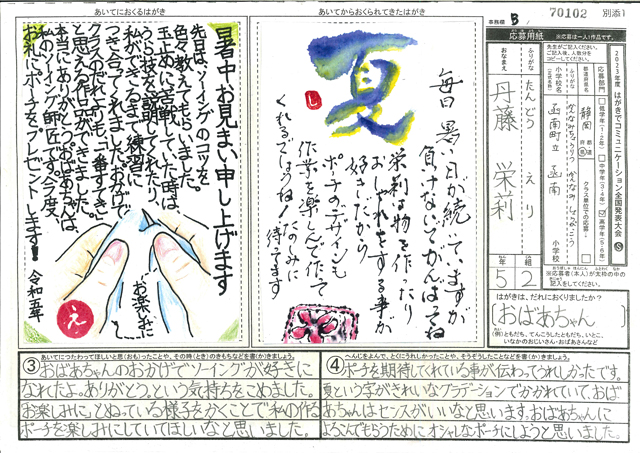 あいてにおくるはがき
暑中お見まい申し上げます
先日は、ソーイングのコツを
色々教えてもらいました。
玉止めに苦戦していた時は、
うら技を説明してくれたり、
私ができるまで練習に
つき合ってくれました。おかげで
クラスのだれよりも「一番すてき」
と思える作品ができました。
本当にありがとう。おばあちゃんは、
私のソーイング師匠です。今度、
お礼にポーチをプレゼントします!!
令和五年
お楽しみに
え
あいてからおくられてきたはがき
夏
毎日暑い日が続いていますが
負けないでがんばってね
栄利は物を作ったり
おしゃれをする事が
好きだから
ポーチのデザインも
作業を楽しんで作って
くれるでしょうね!たのしみに
待ってます
事務局 B
70102
別添1
応募用紙
※応募は一人1作品です。
2023年度 はがきでコミュニケーション全国発表大会
先生がご記入ください。
ご記入後、人数分を
コピーしてください。
応募部門
低学年(1・2年)
中学年(3・4年)
高学年(5・6年)
都道府県名
静岡
クラス単位での応募
ふりがな
小学校名
函南町立 函南
小学校
ふりがな
たんどう えり
おなまえ
丹藤 栄利
年 5
組 2
※応募者(本人)が太枠の中の
記入をしてください。
はがきは、だれにおくりましたか?
(おばあちゃん)
(例)ともだち、てんこうしたともだち、いとこ、
いなかのおじいさん・おばあさんなど
③ あいてにつたわってほしいと思(おも)ったことや、その時(とき)のきもちなどを書(か)きましょう。
おばあちゃんのおかげでソーイングが好きに
なれたよ。ありがとう。という気持ちをこめました。
お楽しみに、とぬっている様子をかくことで私の作る
ポーチを楽しみにしていてほしいなと思いました。
④ へんじをよんで、とくにうれしかったことや、そうぞうしたことなどを書(か)きましょう。
ポーチを期待してくれている事が伝わってうれしかったです。
夏という字がきれいなグラデーションでかかれていて、おば
あちゃんはセンスがいいなと思います。おばあちゃんに
よろこんでもらうためにオシャレなポーチにしようと思いました。